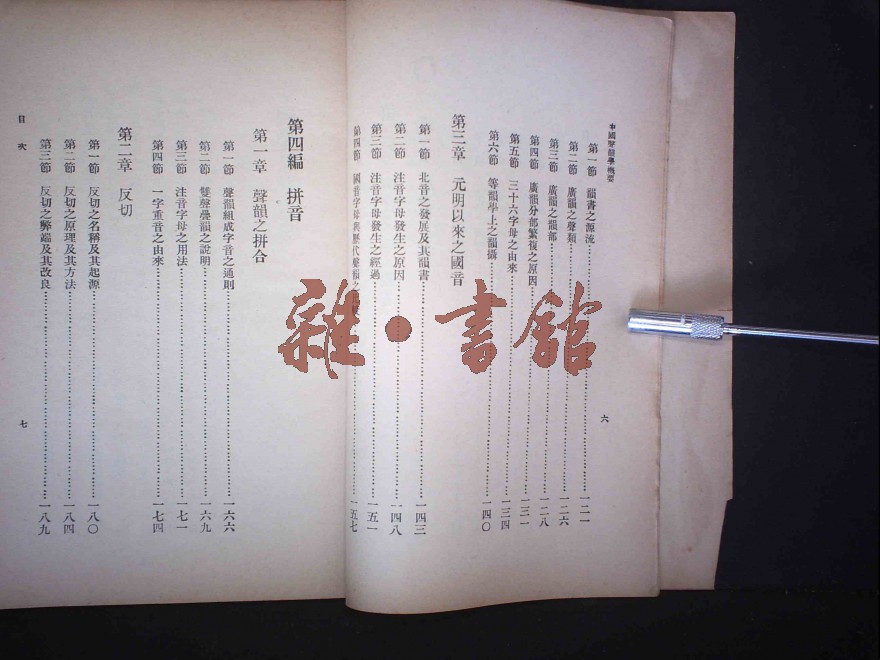 中國聲韻學概要
第一節 韻書之源流 一二一
第二節 廣韻之聲類 一二六
第三節 廣韻之韻部 一二八
第四節 廣韻分部繁複之原因 一三一
第五節 三十六字母之由來 一三四
第六節 等韻學上之韻攝 一四〇
第三章 元明以來之國音
第一節 北音之發展及其韻書 一四三
第二節 注音字母發生之原因 一四八
第三節 注音字母發生之經過 一五一
第四節 國音字母與歷代聲韻之 一五七
六
第四編 拼音
第一章 聲韻之拼合
第一節 聲韻組成字音之通則 一六六
第二節 雙聲疊韻之說明 一六九
第三節 注音字母之用法 一七一
第四節 一字重音之由來 一七四
第二章 反切
第一節 反切之名稱及其起源 一八〇
第二節 反切之原理及其方法 一八四
第三節 反切之弊端及其改良 一八九
目次
七
雜·書館